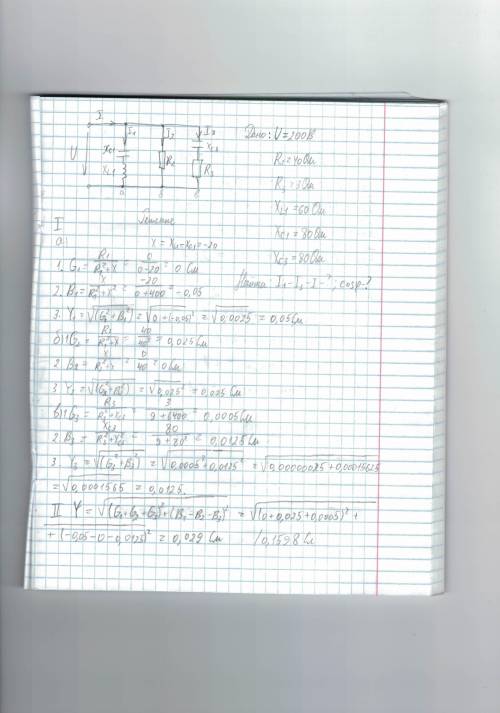 I
I1 I2 I3
U Xc1 XL1 R2 R3
а б в
Дано: U=200В
R2=40Ом
R3=3Ом
XL1=60Ом
Xc1=80Ом
Xc3=80Ом
Найти: I1-I2-I-?; cosφ-?
I Решение
а) X=XL1-Xc1=-20
1. G1=R1/(R1²+X²)=0/(0-20²)=0 См
2. B1=X/(R1²+X²)=-20/(0+400)=-0,05
3. Y1=√(G1²+B1²)=√(0+(-0,05)²)=√0,0025=0,05См
б) 1 G2=R2/(R2²+X²)=40/40²=0,025См
2. B2=X/(R2²+X²)=0/40=0См
3 Y2=√(G2²+B2²)=√0,025²=0,025См
в) 1 G3=R3/(R3²+Xc3²)=3/(9+6400)=0,0005См
2. B3=Xc3/(R3²+Xc3²)=80/(9+80²)=0,0125См
3 Y3=√(G3²+B3²)=√(0,0005²+0,0125²)=√(0,00000025+0,00015625)
=√0,0001565=0,0125.
II Y=√((G1+G2+G3)²+(B1-B2-B3)²)=√((0+0,025+0,0005)²+
+(-0,05-0-0,0125)²=0,029См /0,1598См